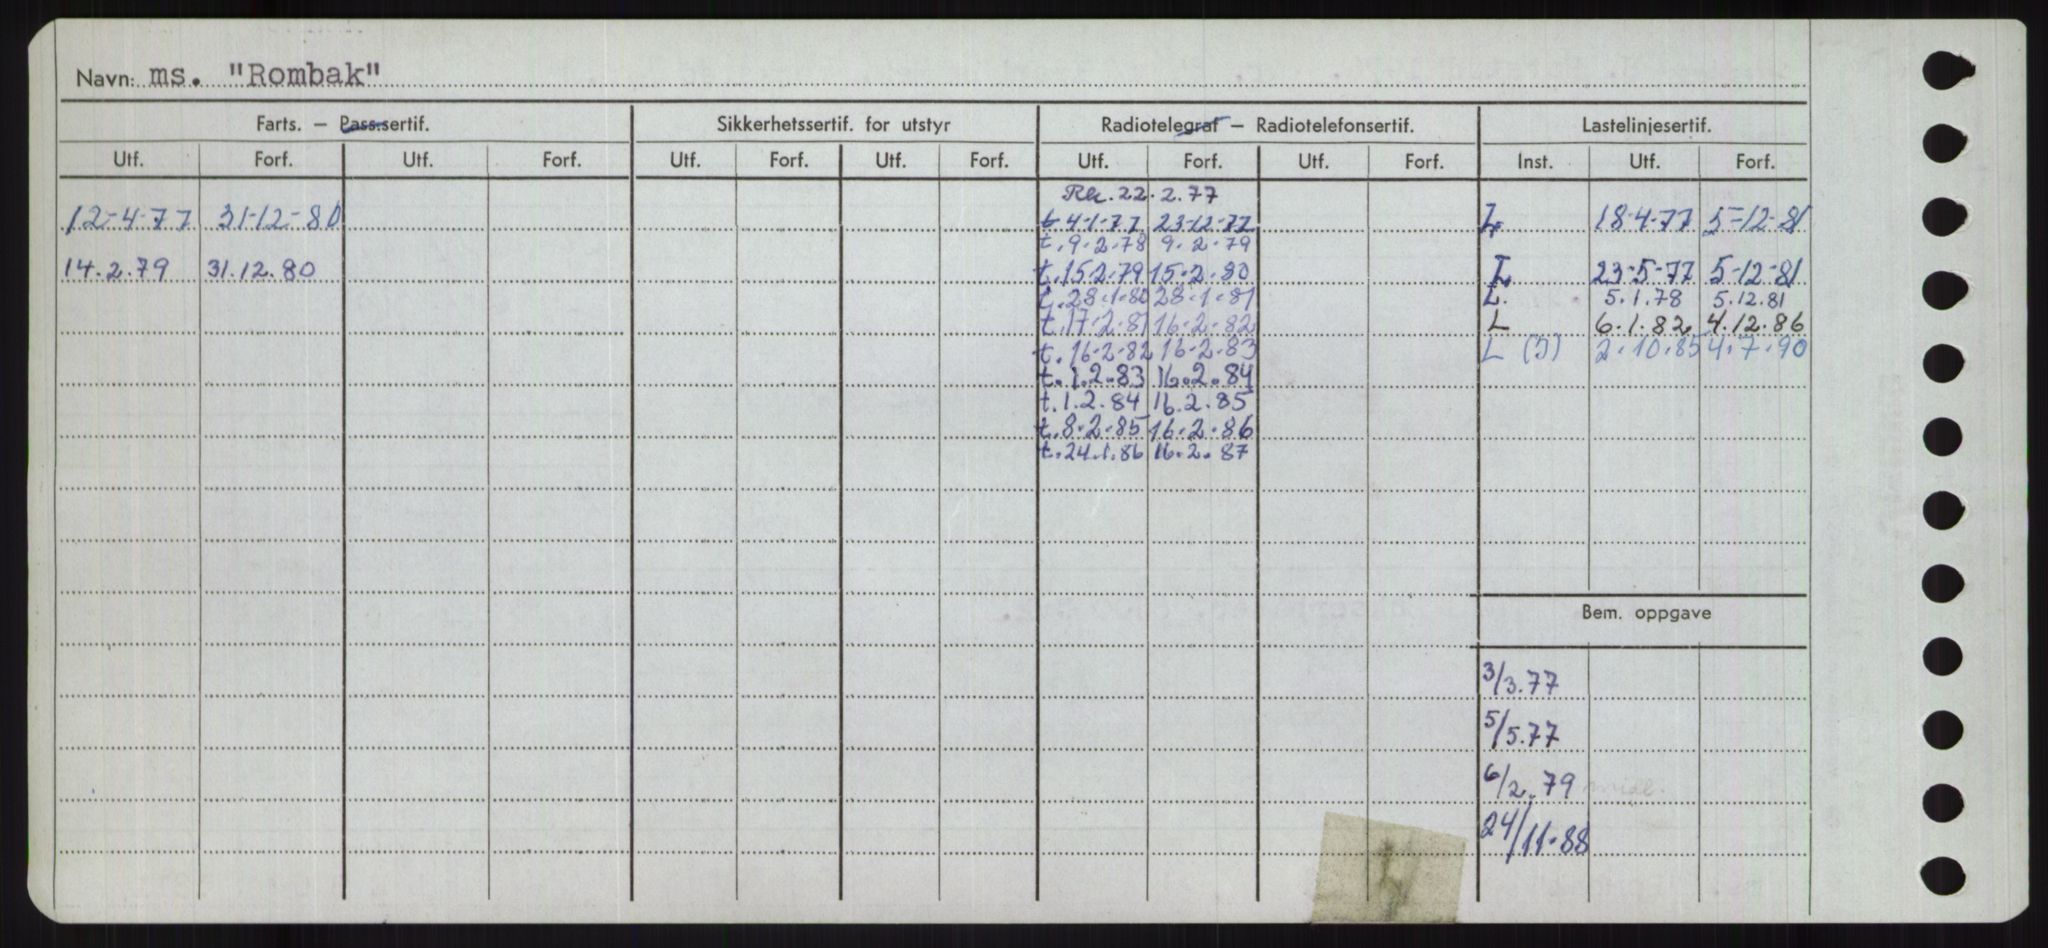 Navn: ms. "Rombak"
Farts. — Pass.sertif. Sikkerhetssertif. for utstyr Radiotelegraf — Radiotelefonsertif. Lastelinjesertif.
Utf. Forf. Utf. Forf. Utf. Forf. Utf. Forf. Utf. Forf. Utf. Forf. Inst. Utf. Forf.
22.2.77
12-4-77 31-12-80 t 4-1-77 23-12-77 L 18-4-77 5-12-81
t. 9.2.78 9.2.79
14.2.79 31.12.80 t. 15.2.79 15.2.80 L 23-5-77 5-12-81
t. 28.1.80 28.1.81 L. 5.1.78 5.12.81
t. 17.2.81 16.2.82 L 6.1.82 4.12.86
t. 16.2.82 16.2.83 L (J) 2.10.85 4.7.90
t. 1.2.83 16.2.84
t. 1.2.84 16.2.85
t. 8.2.85 16.2.86
t. 24.1.86 16.2.87
Bem. oppgave
3/3.77
5/5.77
6/2.79 midl.
24/11.88